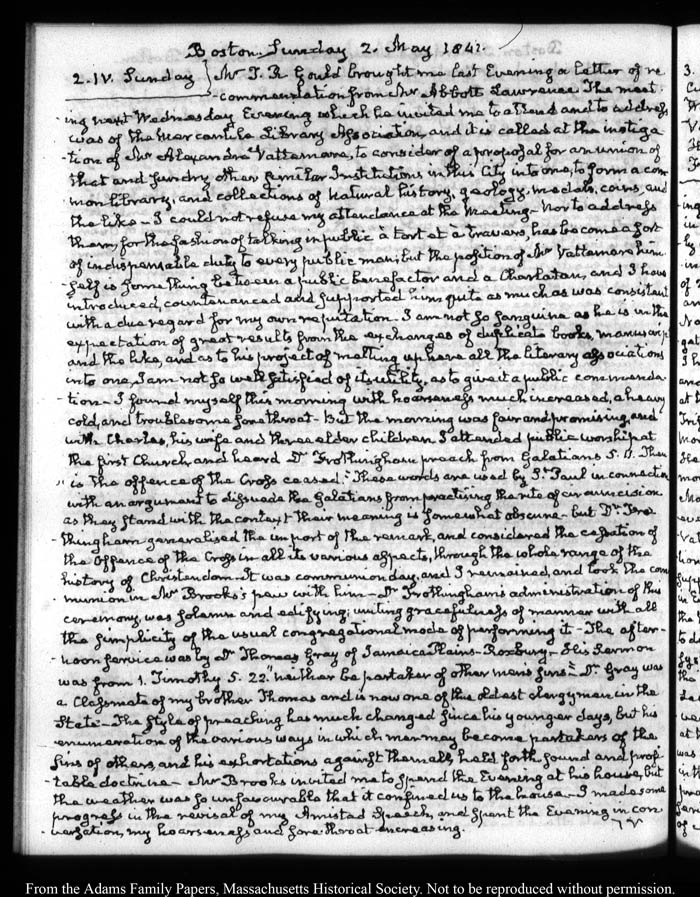 Boston. Sunday 2. May 1841.
2. IV. Sunday } Mr J. R. Gould brought me last Evening a letter of re
commendation from Mr Abbott Lawrence. The meet-
ing next Wednesday Evening which he invited me to attend and to address
was of the Mercantile Library Association, and it is called at the instiga
-tion of Mr Alexandre Vattemare, to consider of a proposal for an union of
that and sundry other similar Institutions in this City into one, to form a com
mon library, and collections of natural history, geology, medals, coins, and
the like – I could not refuse my attendance at the Meeting – nor to address
them, for the fashion of talking in public à tort et a travers, has become a sort
of indispensable duty to every public man; but the position of Mr Vattemare him
-self is something between a public benefactor and a Charlatan, and I have
introduced, countenanced and supported him quite as much as was consistent
with a due regard for my own reputation – I am not so sanguine as he is in the
expectation of great results from the exchanges of duplicate books, manuscrip
and the like, and as to his project of melting up here all the literary associations
into one, I am not so well satisfied of its utility, as to give it a public commenda-
tion – I found myself this morning with hoarseness much increased, a heavy
cold, and troublesome sore throat – But the morning was fair and promising, and
with Charles, his wife and three elder children I attended public worship at
the first Church, and heard Dr Frothingham preach from Galatians 5. 11. Then
"is the offence of the Cross ceased." These words are used by St. Paul in connection
with an argument to dissuade the Galatians from practising the rite of circumcision
as they stand with the context their meaning is somewhat obscure – but Dr. Fro-
thingham generalised the import of the remark, and considered the cessation of
the Offence of the Cross in all its various aspects, through the whole range of the
history of Christendom. It was communion day, and I remained, and took the com
munion in Mr Brooks's pew with him – Dr Frothingham's administration of this
ceremony, was solemn and edifying; uniting gracefulness of manner with all
the simplicity of the usual congregational mode of performing it – The after-
noon service was by Dr Thomas Gray of Jamaica Plains – Roxbury – His Sermon
was from 1. Timothy 5. 22. "neither be partaker of other men's sins" – Dr Gray was
a Classmate of my brother Thomas and is now one of the oldest clergymen in the
State – The style of preaching has much changed since his younger days, but his
enumeration of the various ways in which men may become partakers of the
sins of others, and his exhortations against them all, held forth sound and profi
-table doctrine – Mr Brooks invited me to spend the Evening at his house, but
the weather was so unfavourable that it confined us to the house – I made some
progress in the revisal of my Amistad Speech, and spent the Evening in con
versation, my hoarseness and sore throat increasing.
From the Adams Family Papers, Massachusetts Historical Society. Not to be reproduced without permission.